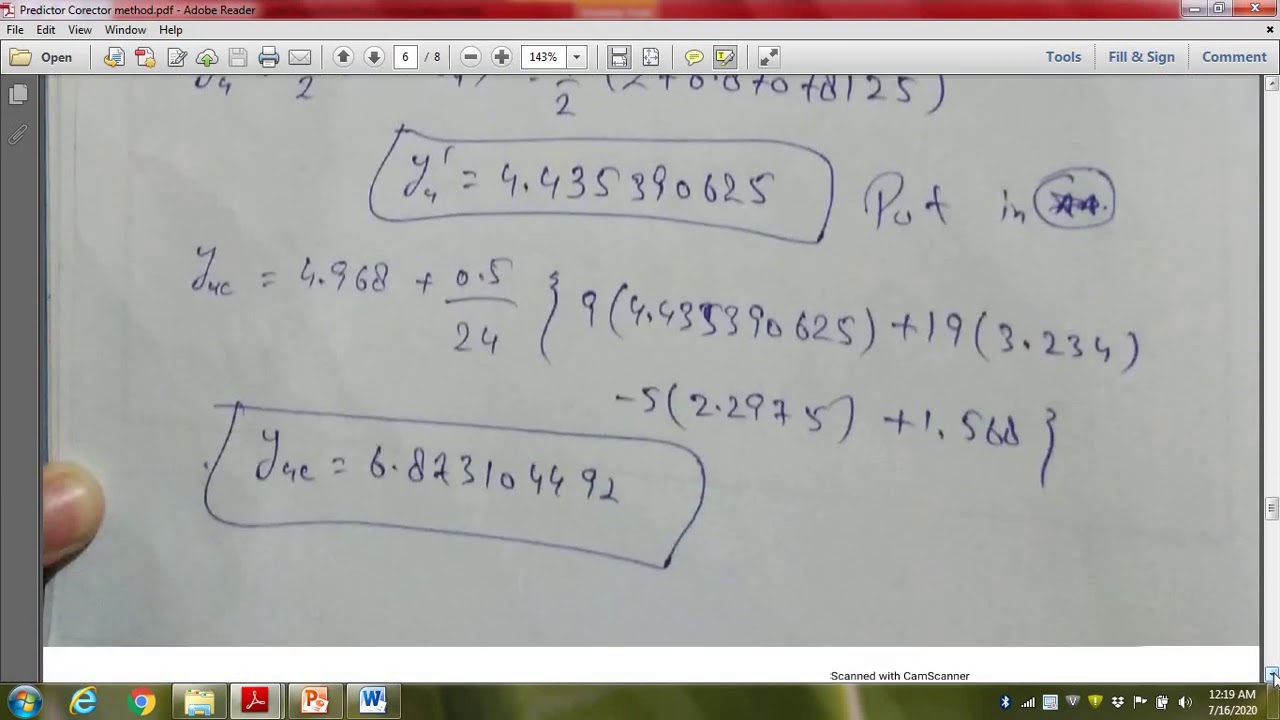 Predictor Corector method.pdf - Adobe Reader
File Edit View Window Help
Open 6 / 8 143% Tools Fill & Sign Comment
2 2 (2+6.87078125)
y₄' = 4.435390625 Put in **
y₄c = 4.968 + 0.5/24 { 9(4.435390625) + 19(3.234)
-5(2.2975) + 1.568 }
y₄c = 6.873104492
Scanned with CamScanner
12:19 AM
7/16/2020